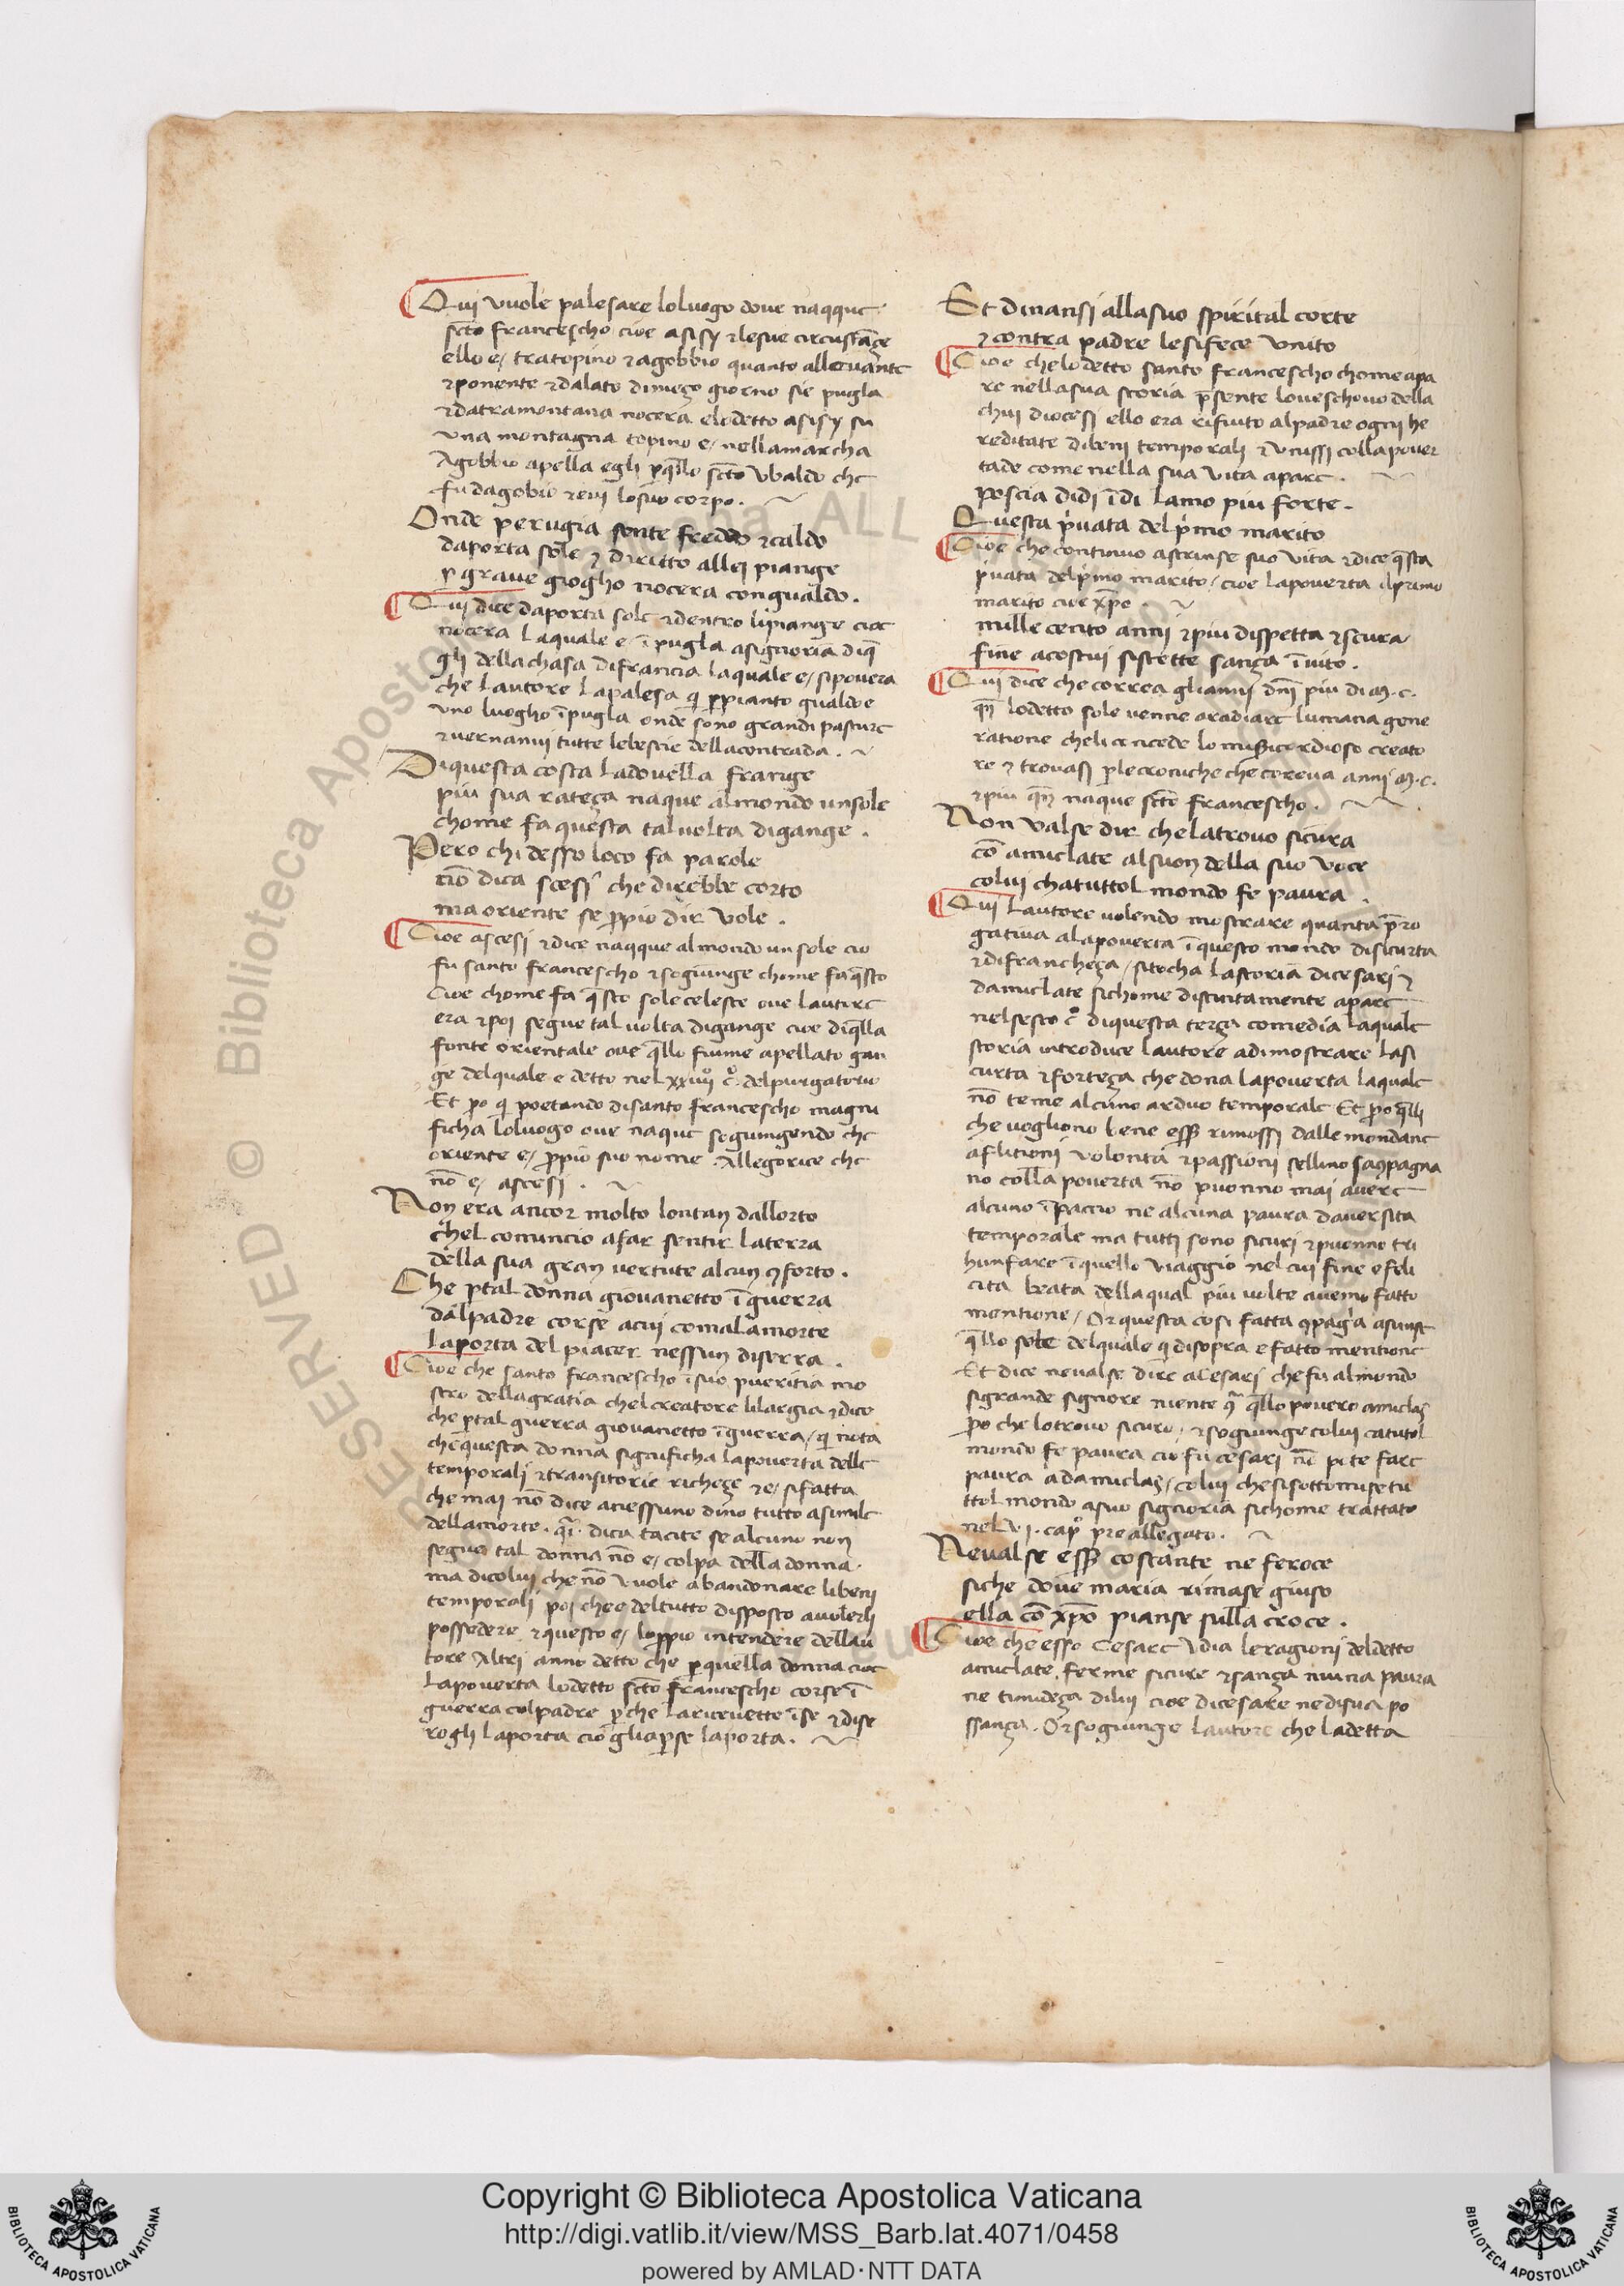 Qui vuole palesare loluogo doue naqque
scto francescho cioe asisy ⁊ lesue circustāçe
ello e/ tratopino ⁊ agobbio quanto alleruante
⁊ ponente ⁊ dalato dimeço giorno sie pugla
⁊ datramontana nocera elodetto asisy su
una montagna topino e/ nellamarcha
Agobbio apella egli pq̄llo scto Vbaldo che
fu dagobio ⁊ eui losuo corpo.
Onde perugia sente freddo ⁊ caldo
daporta sole ⁊ diritto allei piange
p grave giogho nocera congualdo.
Qui dice daporta sole ⁊ dentro lipiange cioe
nocera laquale e ī pugla asignoria diq̄
gli dellachasa difrancia laquale e/ sipouera
che lautore lapalesa qi ppianto gualdo e
uno luogho īpugla onde sono grandi pasture
⁊ uernanui tutte lebestie dellacontrada.
Diquesta costa ladouella frange
piu sua rateça naque almondo unsole
chome fa questa taluolta digange.
Pero chi desso loco fa parole
nō dica scesi che direbbe corto
ma oriente se ppio dir vole.
Cioe ascesi ⁊ dice naqque almondo un sole cio
fu santo francescho ⁊ sogiunge chome faq̄sto
Cioe chome fa q̄sto sole celeste oue lautore
era ⁊ poi segue tal uolta digange cioe diq̄lla
fonte orientale oue q̄llo fiume apellato gan
ge delquale e detto nel xxiiio co. delpurgatorio
Et po qi poetando disanto francescho magni
ficha loluogo oue naque sogiungendo che
oriente e/ ppio suo nome Allegorice che
nō e/ ascesi.
Non era ancor molto lontan dallorto
chel cominciò afar sentir laterra
della sua gran vertute alcun 9forto.
Che ptal donna giouanetto īguerra
dalpadre corse acui comalamorte
laporta del piacer nessun diserra.
Cioe che santo francescho īsuo pueritia mo
stro dellagratia chelcreatore lilargia ⁊ dice
che ptal guerra giouanetto īguerra/ qi nota
chequesta donna significha lapouerta delle
temporali ⁊ transitorie richeçe ⁊ e/ sifatta
che mai nō dice anessuno dino tutto asimile
dellamorte. qi. dica tacite se alcuno non
segua tal donna nō e/ colpa della donna
ma dicolui che nō vuole abandonare libeni
temporali poi che e deltutto disposto auolerli
possedere ⁊ questo e/ loppio intendere dellau
tore Altri anno detto che pquella donna cioe
lapouerta lodetto scto francescho corse ī
guerra colpadre pche lariceuette īse ⁊ dise
rogli laporta cio gliapse laporta.
Et dinansi allasuo spirital corte
⁊ contra padre lesifece vnito
Cioe chelodetto santo francescho chome apa
re nellasua storia psente loueschouo della
chui diocesi ello era rifiuto alpadre ogni he
reditate dibeni temporali ⁊ vnissi collapouer
tade come nella sua vita apare.
poscia didi īdi lamo piu forte.
Questa pivata delpimo marito
Cioe che continuo astrinse suo vita ⁊ dice q̄sta
pivata delpimo marito/ cioe lapouerta ilprimo
marito cioe xpo.
mille cento anni ⁊ piu dispetta ⁊ scura
fine acostui sistette sança īuito.
Qui dice che correa glianni dni piu di M.C.
qn lodetto sole uenne aradiare lumana gene
ratione cheli concede lo misericordioso creato
re ⁊ trouasi plecroniche che coreua anni M.C.
⁊ piu qn naque scto francescho.
Non valse dir chelatrouo sicura
cō amiclate alsuon della suo voce
colui chatuttol mondo fe paura.
Qui lautore uolendo mostrare quanta pro
gatiua alapouerta ī questo mondo disicurta
⁊ difrancheça/ sitocha lastoria dicesari ⁊
damiclate sichome distintamente apare
nelsesto co diquesta terça comedia laquale
storia introduce lautore adimostrare lasi
curta ⁊ forteça che dona lapouerta laquale
nō teme alcuno arduo temporale Et po q̄lli
che uogliono bene esser rimossi dalle mondane
aflitioni volonta ⁊ passioni sellino sa9pagna
no colla pouerta nō puonno mai auere
alcuno īpaccio ne alcuna paura dauersita
temporale ma tutti sono sicuri ⁊ puonno tri
hunfare īquello viaggio nel cui fine e feli
cita beata dellaqual piu uolte auemo fatto
mentione/ Or questa cosi fatta 9pagia asunse
q̄llo sole delquale qi disopra e fatto mentione
Et dice neualse dire acesari che fu almondo
sigrande signore niente 9tra q̄llo pouero amiclas
po che lotrouo sicuro/ ⁊ sogiunge colui catutol
mondo fe paura cio fu cesari nō pote fare
paura adamiclas/ colui chesisottomise tu
ttol mondo asuo signoria sichome trattato
nel VI. capo preallegato.
Neualse esser costante ne feroce
siche doue maria rimase giuso
ella cō xpo pianse sulla croce.
Cioe che esso Cesare vdia leragioni deldetto
amiclate ferme sicure ⁊ sança niuna paura
ne timideça dilui cioe dicesare nedisua po
ssança. Or sogiunge lautore che ladetta
Copyright © Biblioteca Apostolica Vaticana
http://digi.vatlib.it/view/MSS_Barb.lat.4071/0458
powered by AMLAD·NTT DATA
BIBLIOTECA APOSTOLICA VATICANA
BIBLIOTECA APOSTOLICA VATICANA